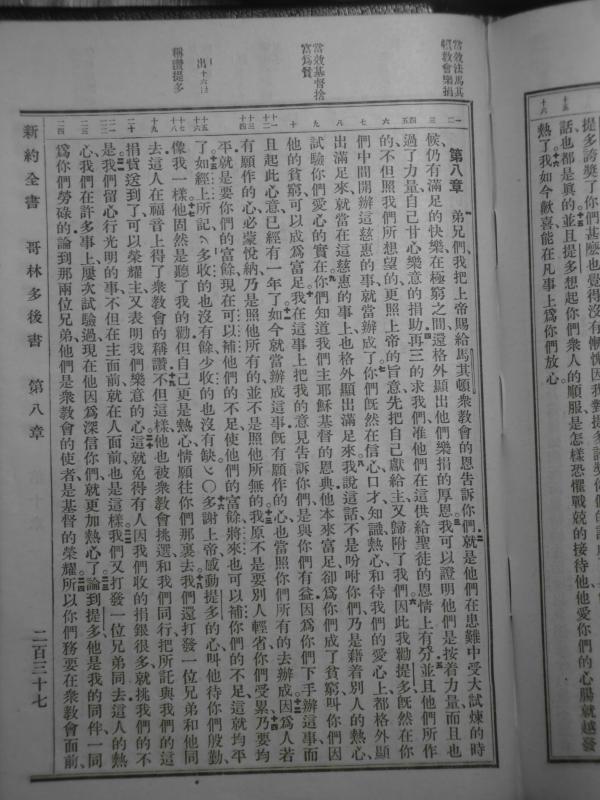 話也都是眞的並且提多想起你們衆人的順服是怎樣恐懼戰兢的接待他他愛你們的心腸就越發
熱了我如今歡喜能在凡事上爲你們放心。
當效法馬其頓教會樂捐
當效基督捨富爲貧
稱讚提多
第八章 弟兄們、我把上帝賜給馬其頓衆教會的恩告訴你們、就是他們在患難中受大試煉的時
候、仍有滿足的快樂、在極窮之間、還格外顯出他們樂捐的厚恩。我可以證明他們是按着力量、而且也
過了力量、自己甘心樂意的捐助、再三的求我們、准他們在這供給聖徒的恩情上有分、並且他們所作
的、不但照我們所想望的、更照上帝的旨意、先把自己獻給主、又歸附了我們。因此我勸提多、旣然在你
們中間開辦這慈惠的事、就當辦成了。你們旣然在信心、口才、知識、熱心、和待我們的愛心上、都格外顯
出滿足來、就當在這慈惠的事上、也格外顯出滿足來。我說這話、不是吩咐你們、乃是藉着別人的熱心、
試驗你們愛心的實在。你們知道我們主耶穌基督的恩典、他本來富足、卻爲你們成了貧窮、叫你們因
他的貧窮、可以成爲富足。我在這事上把我的意見告訴你們、是與你們有益、因爲你們下手辦這事、而
且起此心意、已經有一年了。如今就當辦成這事、旣有願作的心、也當照你們所有的去辦成。因爲人若
有願作的心、必蒙悅納、乃是照他所有的、並不是照他所無的。我原不是要別人輕省、你們受累、乃要均
平、就是要你們的富餘、現在可以補他們的不足、使他們的富餘、將來也可以補你們的不足、這就均平
了。如經上所記、多收的也沒有餘、少收的也沒有缺。〇多謝上帝、感動提多的心、叫他待你們殷勤、
像我一樣。他固然是聽了我的勸、但自己更是熱心、情願往你們那裏去。我們還打發一位兄弟和他同
去、這人在福音上得了衆教會的稱讚。不但這樣、他也被衆教會挑選、和我們同行、把所託與我們的這
捐貲送到了、可以榮耀主、又表明我們樂意的心。這就免得有人因我們收的捐銀很多、就挑我們的不
是。我們留心行光明的事、不但在主面前、就在人面前、也是這樣。我們又打發一位兄弟同去、這人的熱
心、我們在許多事上、屢次試驗過、現在他因爲深信你們、就更加熱心了。論到提多、他是我的同伴、一同
爲你們勞碌的、論到那兩位兄弟、他們是衆教會的使者、是基督的榮耀。所以你們務要在衆教會面前、
新約全書 哥林多後書 第八章 二百三十七